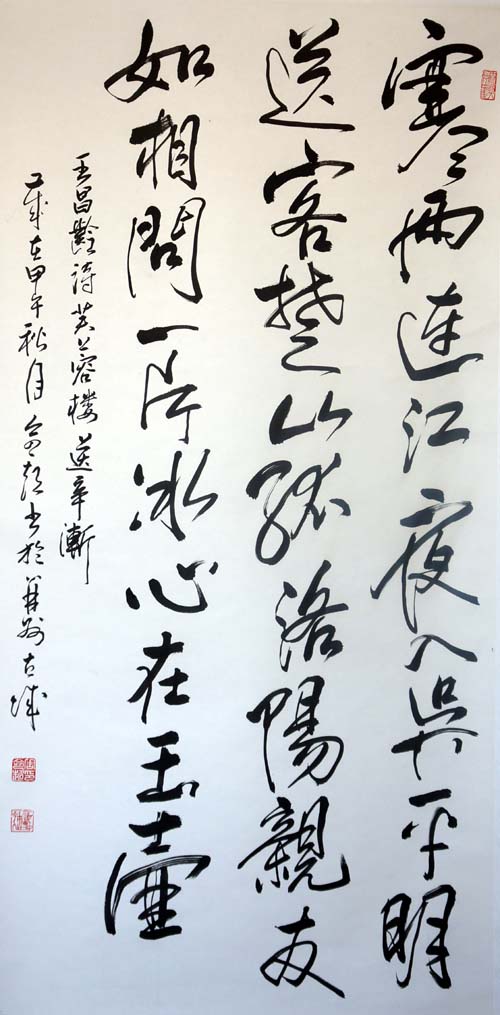 寒雨連江夜入吳平明
送客楚山孤洛陽親友
如相問一片冰心在玉壺
王昌齡詩芙蓉樓送辛漸
歲在甲午秋月